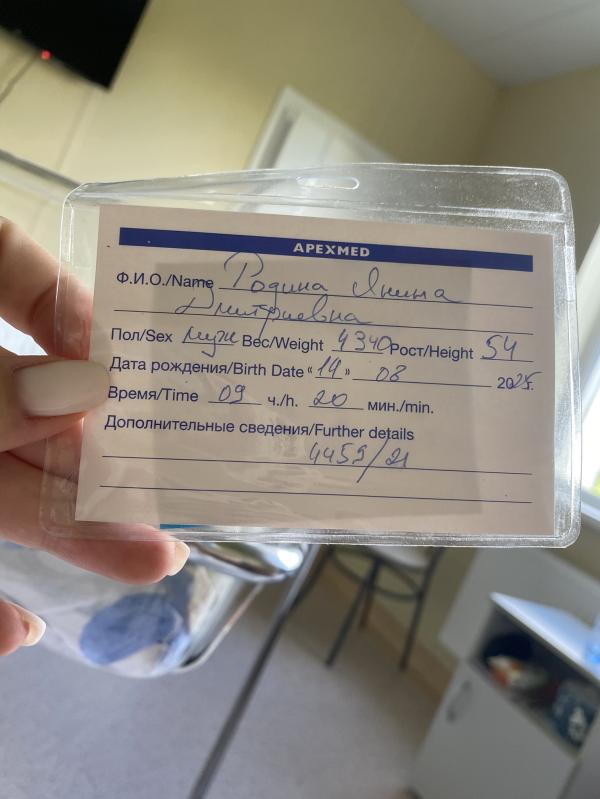 APEXMED
Ф.И.О./Name Родина Янина
Дмитриевна
Пол/Sex муж Вес/Weight 4340 Рост/Height 54
Дата рождения/Birth Date "14" 08 2025г.
Время/Time 09 ч./h. 20 мин./min.
Дополнительные сведения/Further details
4459/21